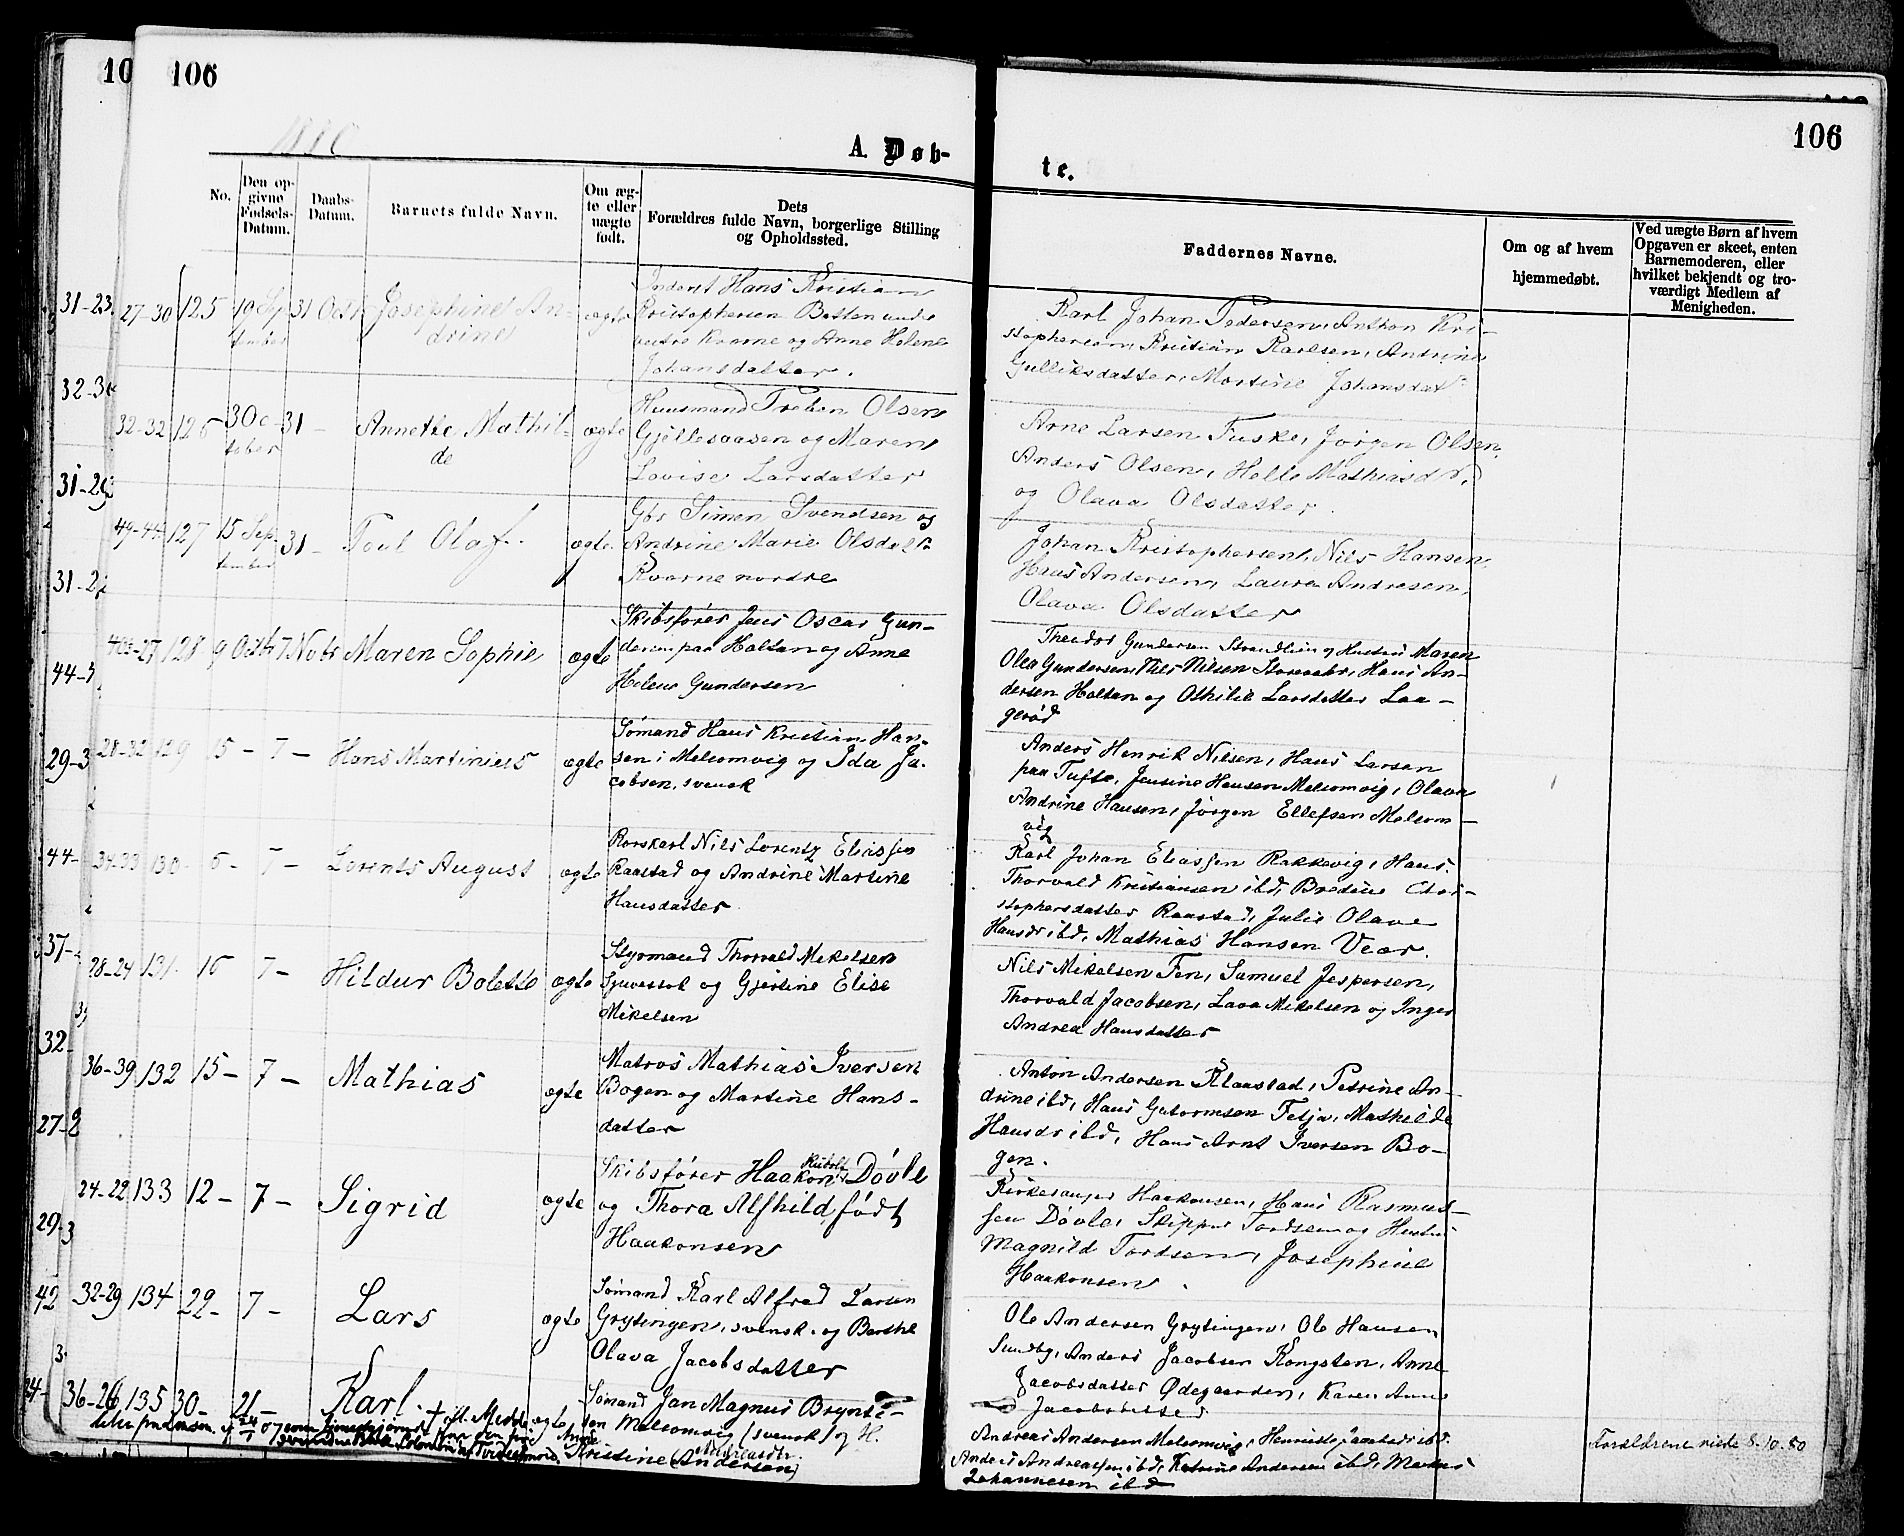 106
106
1880
A. Døb-
te.
No.
Den op-
givne
Fødsels-
Datum.
Daabs-
Datum.
Barnets fulde Navn.
Om æg-
te eller
uægte
født.
Dets
Forældres fulde Navn, borgerlige Stilling
og Opholdssted.
Faddernes Navne.
Om og af hvem
hjemmedøbt.
Ved uægte Børn af hvem
Opgaven er skeet, enten
Barnemoderen, eller
hvilket bekjendt og tro-
værdigt Medlem af
Menigheden.
27-30 125 19 Sep-
tember
31 Octr
Josephine An-
drine
ægte
Inderst Hans Kristian
Kristophersen Botten under
Kvarne og Anne Helene
Johansdatter.
Karl Johan Pedersen, Anthon Kri-
stophersen, Kristian Karlsen, Andrine
Gulliksdatter, Martine Johansdatr
32-32 126 3 Oc-
tober
31 -
Annette Mathil-
de
ægte
Huusmand Preben Olsen
Gjellesaasen og Maren
Lovise Larsdatter
Arne Larsen Fuske, Jørgen Olsen,
Anders Olsen, Helle Mathiasdtr.
og Olava Olsdatter.
49-44 127 15 Sep-
tember
31 -
Poul Olaf.
ægte
Gbr Simen Svendsen og
Andrine Marie Olsdatr.
Kvarne nordre
Johan Kristophersen, Nils Hansen
Hans Andersen, Laura Andresen,
Olava Olsdatter
27 128 9 Octbr 7 Nobr Maren Sophie
ægte
Skibsfører Jens Oscar Gun-
dersen paa Holtan og Anne
Helene Gundersen
Theodor Gundersen Strandlien og Hustru Maren
Olea Gundersen, Nils Nilsen Storevahr, Hans An-
dersen Holtan og Othilie Larsdatter Laa-
gerød
28-32 129 15 - 7 - Hans Martinius
ægte
Sømand Hans Kristian Han-
sen i Melsomvig og Ida Ja-
cobsen, svensk
Anders Henrik Nilsen, Hans Larsen
paa Tufte, Jensine Hansen Melsomvig, Olava
Andrine Hansen, Jørgen Ellefsen Melsom-
vig
34-33 130 6 - 7 - Lorents August
ægte
Rorskarl Nils Lorentz Eliassen
Raastad og Andrine Martine
Hansdatter
Karl Johan Eliassen Rakkevig, Hans
Thorvald Kristiansen ibd, Bredine Chri-
stophersdatter Raastad, Julie Olave
Hansdr ibd, Mathias Hansen Vear.
28-24 131 16 7 - Hildur Bolette
ægte
Styrmand Thorvald Mikelsen
og Gjertine Elise
Mikelsen
Nils Mikelsen Fen, Samuel Jespersen,
Thorvald Jacobsen, Lava Mikelsen og Inger
Andrea Hansdatter
36-39 132 15 - 7 - Mathias
ægte
Matros Mathias Iversen
Bogen og Martine Hans-
datter
Anton Andersen Klaastad, Petrine An-
drine ibd, Hans Gutormsen Fetja, Mathilde
Hansdr ibd, Hans Arnt Iversen Bo-
gen.
24-22 133 12 - 7 - Sigrid
ægte
Skibsfører Haakon Rudolf Døvle
og Thora Alfhild, født
Haakonsen
Kirkesanger Haakonsen, Hans Rasmus-
sen Døvle, Skipper Tordsen og Hustru
Magnild Tordsen, Josephine
Haakonsen.
32-29 134 29 - 7 - Lars
ægte
Sømand Karl Alfred Larsen
Grytingen, svensk. og Berthe
Olava Jacobsdatter
Ole Andersen Grytingen, Ole Hansen
Sundby, Anders Jacobsen Kongsten, Anne
Jacobsdatter Ødegaarden, Karen Anne
Jacobsdatter
36-26 135 30 - 21 - Karl.
ægte
Sømand Jan Magnus Brynti-
sen Melsomvig (svensk) og H.
Kristine Andreasdtr. (Andersen)
Andreas Andersen Melsomvig, Henriette ibd.
Anders Andreassen ibd, Katrine Andersen ibd, Markus
Johannesen ibd
Forældrene viede 8.10.80
31-23
31-29
29-3
44-
37-
32
27-2
29-3
42